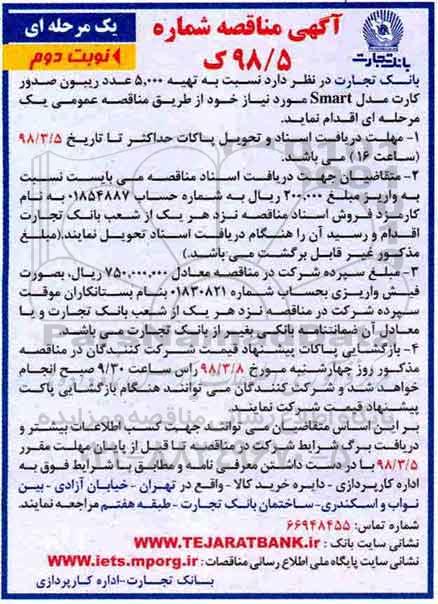 آگهی مناقصه شماره
۹۸/۵ ک
یک مرحله ای
نوبت دوم
بانک تجارت
بانک تجارت در نظر دارد نسبت به تهیه ۵,۰۰۰ عدد ریبون صدور
کارت مدل Smart مورد نیاز خود از طریق مناقصه عمومی یک
مرحله ای اقدام نماید.
۱- مهلت دریافت اسناد و تحویل پاکات حداکثر تا تاریخ ۹۸/۳/۵
(ساعت ۱۶) می باشد.
۲- متقاضیان جهت دریافت اسناد مناقصه می بایست نسبت
به واریز مبلغ ۲۰۰,۰۰۰ ریال به شماره حساب ۰۱۸۵۴۸۸۷ به نام
کارمزد فروش اسناد مناقصه نزد هر یک از شعب بانک تجارت
اقدام و رسید آن را هنگام دریافت اسناد تحویل نمایند.(مبلغ
مذکور غیر قابل برگشت می باشد.)
۳- مبلغ سپرده شرکت در مناقصه معادل ۷۵۰,۰۰۰,۰۰۰ ریال، بصورت
فیش واریزی بحساب شماره ۰۱۸۳۰۸۲۱ بنام بستانکاران موقت
سپرده شرکت در مناقصه نزد هر یک از شعب بانک تجارت و یا
معادل آن ضمانتنامه بانکی بغیر از بانک تجارت می باشد.
۴- بازگشایی پاکات پیشنهاد قیمت شرکت کنندگان در مناقصه
مذکور روز چهارشنبه مورخ ۹۸/۳/۸ راس ساعت ۹/۳۰ صبح انجام
خواهد شد و شرکت کنندگان می توانند هنگام بازگشایی پاکت
پیشنهاد قیمت شرکت نمایند.
بر این اساس متقاضیان می توانند جهت کسب اطلاعات بیشتر و
دریافت برگ شرایط شرکت در مناقصه تا قبل از پایان مهلت مقرر
۹۸/۳/۵ با در دست داشتن معرفی نامه و مطابق با شرایط فوق به
اداره کارپردازی - دایره خرید کالا - واقع در تهران - خیابان آزادی - بین
نواب و اسکندری- ساختمان بانک تجارت - طبقه هفتم مراجعه نمایند.
شماره تماس: ۶۶۹۴۸۴۵۵
نشانی سایت بانک : WWW.TEJARATBANK.ir
نشانی سایت پایگاه ملی اطلاع رسانی مناقصات : www.iets.mporg.ir
بانک تجارت-اداره کارپردازی